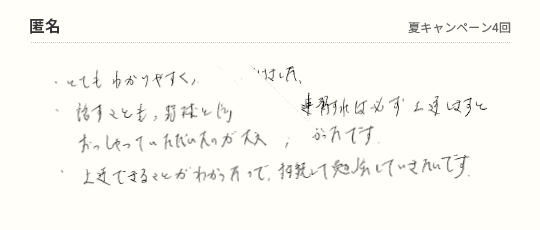 匿名
夏キャンペーン4回
・とてもわかりやすく, けました。
・話すことも, 野球と同 練習すれば必ず上達しますと
おっしゃっていただいたのが大 かったです。
・上達できることがわかったので, 継続して勉強していきたいです。